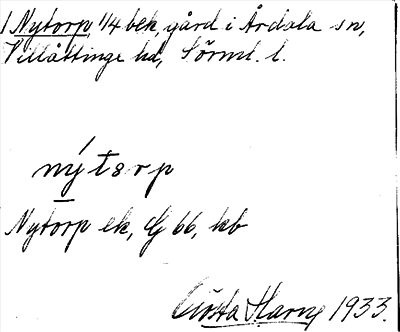 Nytorp, 1/4 bek, gård i Årdala sn,
Villåttinge hd, Sörml. l.
nýtɘrp
Nytorp ek, G 66, kb
Gösta Harne 1933.